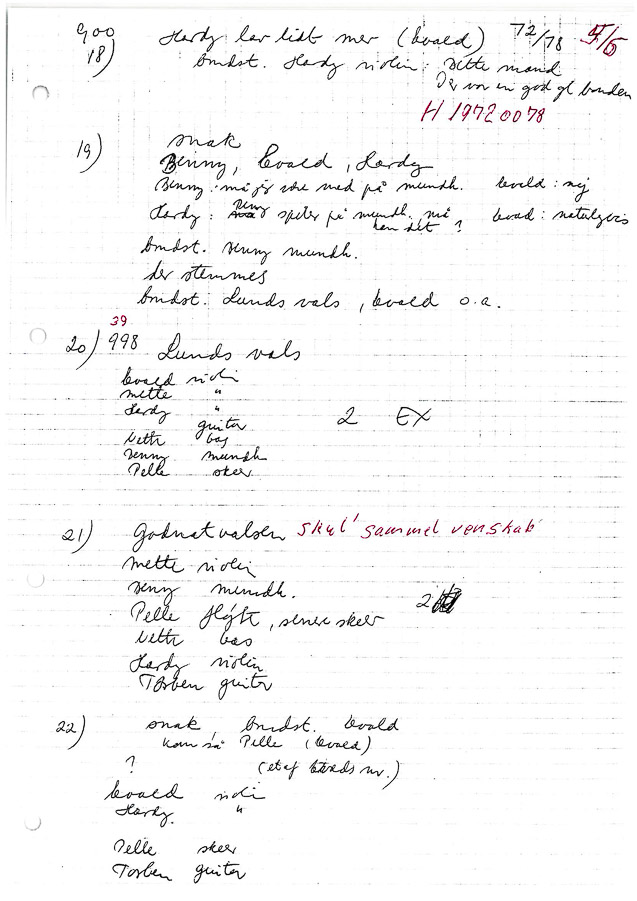 900 Hardy lar lidt mer (Evald) 72/78 4/5
18) båndst. Hardy violin: Ditte mand
Der var en god gl bonden
H 19720078
19) snak
Benny, Evald, Hardy
Benny: må jeg være med på mundh. Evald: nej
Hardy: Benny spiller på mundh. må Evald: naturligvis
han det?
båndst. Benny mundh.
der stemmes
båndst. Lunds vals, Evald o.a.
39
20) 998 Lunds vals
Evald violin
Mette "
Hardy "
guitar 2 EX
Vette bas
Benny mundh
Pelle skeer
21) Godnatvalsen Skul' gammel venskab
Mette violin
Benny mundh. 2
Pelle fløjte, senere skeer
Vette bas
Hardy violin
Torben guitar
22) snak, båndst. Evald
kom så Pelle (Evald)
? (et af Evalds nr.)
Evald violin
Hardy "
Pelle skeer
Torben guitar